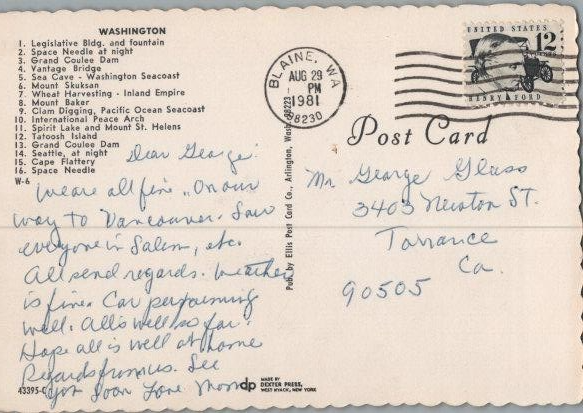 WASHINGTON
1. Legislative Bldg. and fountain
2. Space Needle at night
3. Grand Coulee Dam
4. Vantage Bridge
5. Sea Cave - Washington Seacoast
6. Mount Skuksan
7. Wheat Harvesting - Inland Empire
8. Mount Baker
9. Clam Digging, Pacific Ocean Seacoast
10. International Peace Arch
11. Spirit Lake and Mount St. Helens
12. Tatoosh Island
13. Grand Coulee Dam
14. Seattle, at night
15. Cape Flattery
16. Space Needle
W-6
Dear George:
We are all fine. On our
way to Vancouver. Saw
everyone in Salem, etc.
All send regards. Weather
is fine. Car performing
well. All's well so far.
Hope all is well at home
Regards from us. See
you soon Love Mom
43395-C
dp MADE BY
DEXTER PRESS,
WEST NYACK, NEW YORK
Pub. by Ellis Post Card Co., Arlington, Wash. 98223
BLAINE, WA
AUG 29
PM
1981
98230
UNITED STATES
12
HENRY FORD
Post Card
Mr George Glass
3403 Newton ST.
Torrance
Ca.
90505